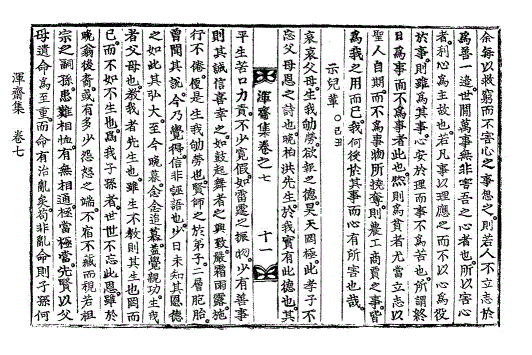 余每以救窮而不害心之事思之則若人不立志於
爲善一造世間萬事無非害吾之心者也所以害心
者利心爲主故也若凡事以理應之而不以心爲役
於事則雖爲其事心安於理而事不爲苦也所謂終
日爲事而不爲事者此也然則爲貧者尤當立志以
聖人自期而不爲事物所撓奪則農工商賈之事皆
爲我之用而已我何役於其事而心有所害也哉
示兒輩 己丑
哀哀父母生我劬勞欲報之德昊天罔極此孝子不
忘父母恩之詩也晩柏洪先生於我實有此德也其
渾齋集卷之七 十一
平生苦口力責不少寬假如雷霆之振物少有善事
則其誠信喜幸之如鼓起舞者之興致嚴霜雨露施
行不倦便是生我劬勞也賢師之於弟子二層胞胎
曾聞其說今乃覺得信非誣語也少日未知其恩德
之如此其弘大至今晩暮念念追慕益覺親切生我
者父母也教我者先生也雖生不教則其生也罔而
已而不如不生也爲我子孫者世世不忘此恩雖於
晩翁後裔或有多少怨怒之端不宿不藏而視若祖
宗之嗣孫患難相恤有無相通極當極當先賢以父
母遺命爲至重而命有治亂矣苟非亂命則子孫何
渾齋集 卷七